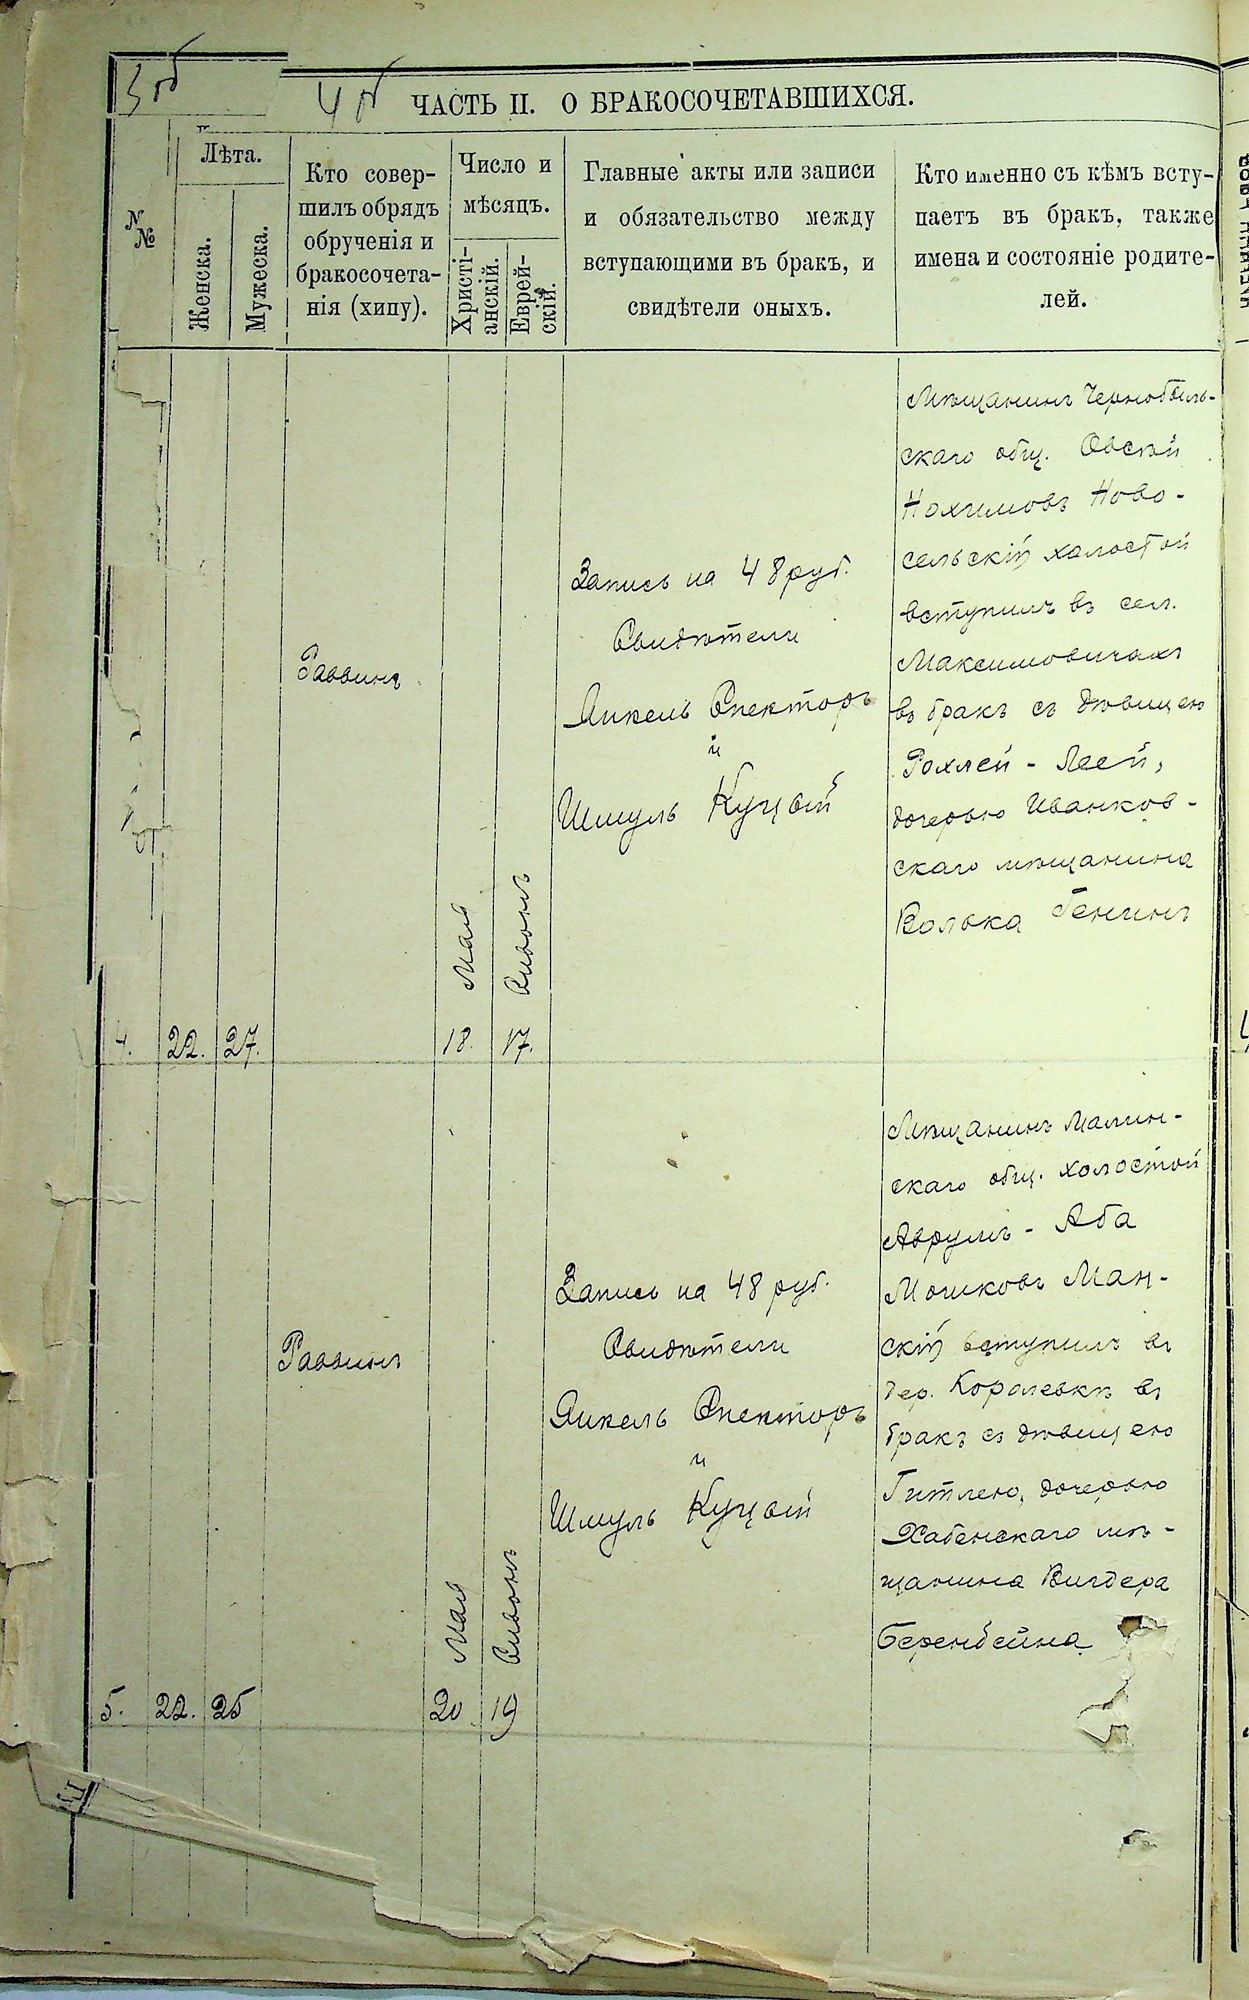 3 об
4 об
ЧАСТЬ II. О БРАКОСОЧЕТАВШИХСЯ.
№№
Лѣта.
Женска.
Мужеска.
Кто совер-
шилъ обрядъ
обрученія и
бракосочета-
нія (хипу).
Число и
мѣсяцъ.
Христі-
анскій.
Еврей-
скій.
Главные акты или записи
и обязательство между
вступающими въ бракъ, и
свидѣтели оныхъ.
Кто именно съ кѣмъ всту-
паетъ въ бракъ, также
имена и состояніе родите-
лей.
4.
22.
27.
Раввинъ
Мая
18.
Сивонъ
17.
Запись на 48 руб.
Свидѣтели
Янкель Спекторъ
и
Шмуль Куцый
Мѣщанинъ Чернобыль-
скаго общ. Овсѣй
Нохимовъ Ново-
сельскій холостой
вступилъ въ сел.
Максимовичахъ
въ бракъ съ дѣвицею
Рохлей - Леей,
дочерью Иванков-
скаго мѣщанина
Волька Генинъ
5.
22.
25
Раввинъ
Мая
20
Сивонъ
19
Запись на 48 руб.
Свидѣтели
Янкель Спекторъ
и
Шмуль Куцый
Мѣщанинъ Малин-
скаго общ. холостой
Аврумъ - Аба
Мошковъ Ман-
скій вступилъ въ
дер. Королевкѣ въ
бракъ съ дѣвицею
Гитлею, дочерью
Хабенскаго мѣ-
щанина Вигдера
Беренбейна